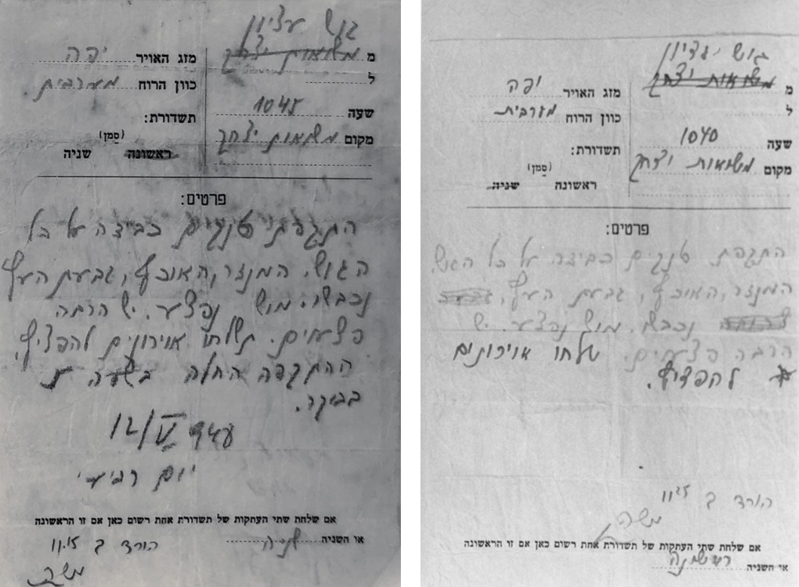 גוש עציון
מ משואות יצחק
ל
שעה 1045
מקום משואות יצחק
מזג האויר יפה
כוון הרוח מערבית
תשדורת:
(סַמן)
ראשונה שניה
פרטים:
התקפת טנקים כבידה על כל
הגוש. המנזר, האוכף, גבעת העץ
נכבשו. מוש נפצע. יש הרבה
פצועים. תשלחו אוירונים להפציץ.
ההתקפה החלה בשעה 5
בבוקר.
12/V
יום רביעי
אם שלחת שתי העתקות של תשדורת אחת רשום כאן אם זו הראשונה
או השניה שניה
הורד ב 11.15
משה
גוש עציון
מ משואות יצחק
ל
שעה 1040
מקום משואות יצחק
מזג האויר יפה
כוון הרוח מערבית
תשדורת:
(סַמן)
ראשונה שניה
פרטים:
התקפת טנקים כבידה על כל הגוש.
המנזר, האוכף, גבעת העץ,
נכבשו. מוש נפצע. יש
הרבה פצועים. שלחו אוירונים
להפציץ.
הורד ב 11.15
משה
אם שלחת שתי העתקות של תשדורת אחת רשום כאן אם זו הראשונה
או השניה ראשונה